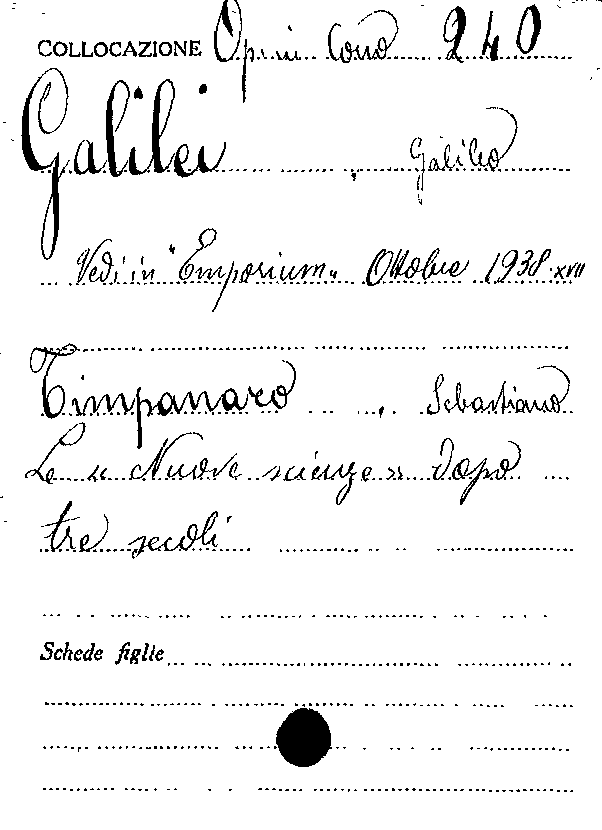 COLLOCAZIONE Opin. Cons 240
Galilei , Galileo
Vedi in "Emporium" Ottobre 1938·XVII
Timpanaro , Sebastiano
Le « Nuove scienze » dopo
tre secoli
Schede figlie